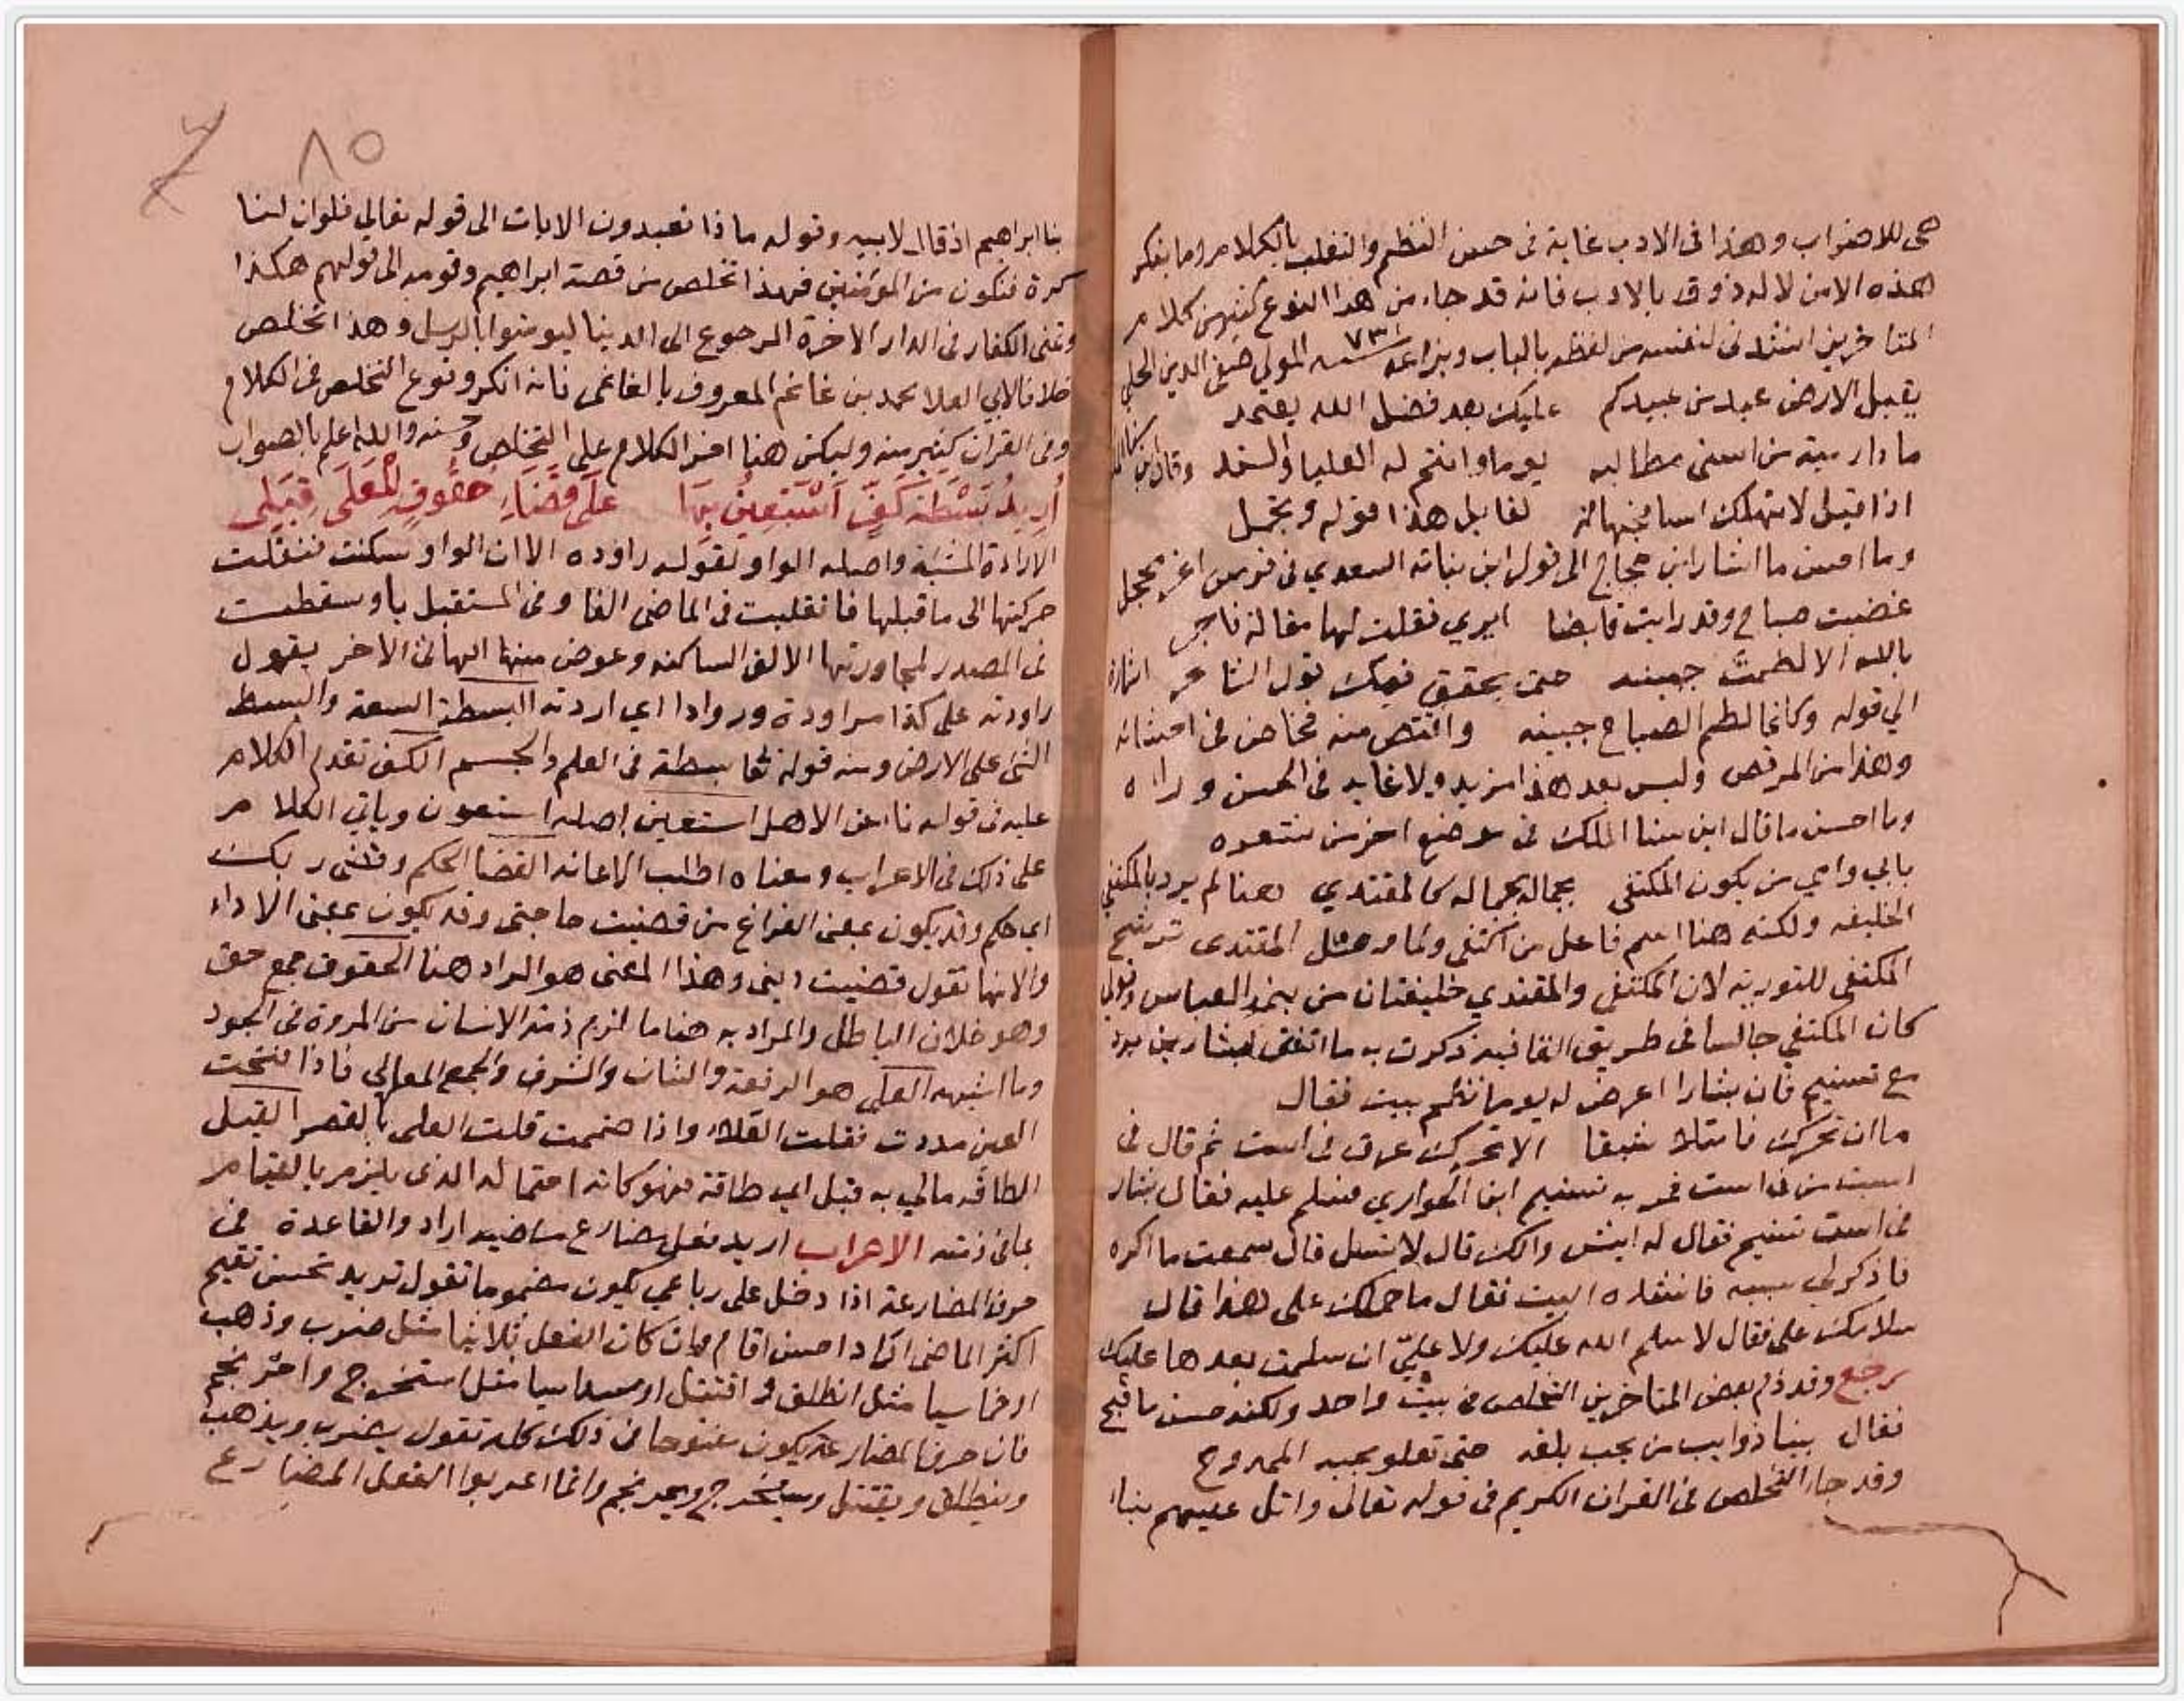 هى للاضراب وهذا فى الادب غاية فى حسن النظم والتغلب بالكلام وما ينكر
هذه الامن لا له ذوق بالادب فانه قد جاء من هذا النوع كثير من كلام
المتاخرين انشدنى لنفسه من لفظه بالباب وبزاعه سنه ٧٣١ المولى صفى الدين الحلي
يقبل الارض عبد من عبيدكم عليك بعد فضل الله يعتمد
ما دار مية من اسنى مطالبه يوما وانتم له العليا والسند وقال ابن
اذا قيل لا تهلك اسا لقابل هذا قوله وتجمل
وما احسن ما اشار ابن حجاج الى قول ابن نباته السعدي فى فرس اغر محجل
غضبت صباح وقد راتنى قابضا ايري فقلت لها مقالة فاجر
بالله الا لطمت جبينه حتى يحقق فيك قول الشاعر اشارة
الي قوله وكانما لطم الصباح جبينه واقتص منه فخاض فى احشائه
وهذا من المرقص وليس بعد هذا مزيد ولا غايه فى الحسن وراه
وما احسن ما قال ابن سنا الملك فى موضع اخر من شعره
بابي وامي من يكون المكتفى بجماله كالمقتدي هنا لم يرد بالمكتفي
الخليفه ولكنه هنا اسم فاعل من اكتفى ولما ورد مثل المقتدى ترشح
المكتفى للتورية لان المكتفى والمقتدي خليفتان من بنى العباس
كان المكتفي جالسا فى طريق القافيه ذكرت به ما اتفق لبشار بن برد
مع تسنيم فان بشارا اعرض له يوما نظم بيت فقال
ما ان تحرك فامتلا شبقا الا تحرك عرق فى است ثم قال فى
است من فى است فمر به تسنيم ابن الحواري فسلم عليه فقال بشار
فى است تسنيم فقال له ايش والك قال لا تسل قال سمعت ما اكره
فاذكر لي سببه فانشده البيت فقال ما حملك على هذا قال
سلامك على فقال لا سلم الله عليك ولا عليّ ان سلمت بعدها عليك
يرجع وقد ذم بعض المتاخرين التخلص فى بيت واحد ولكنه حسن ما قبح
فقال بينا ذوايب من يحب بلفه حتى تعلو بجبه الممدوح
وقد جاء التخلص فى القران الكريم فى قوله تعالى واتل عليهم نباء
بنا ابراهيم اذ قال لابيه وقوله ما ذا تعبدون الايات الى قوله تعالى فلو ان لنا
كرة فنكون من المؤمنين فهذا تخلص من قصة ابراهيم وقومه الى قولهم هكذا
وتمنى الكفار فى الدار الاخرة الرجوع الى الدنيا ليومنوا بالرسل وهذا تخلص
خلافا لابي العلا محمد بن غانم المعروف بالغانمى فانه انكر وقوع التخلص فى الكلام
وفى القران كثير منه وليكن هنا اخر الكلام على التخلص وحسنه والله اعلم بالصواب
أُرِيدُ بَسْطَةَ كَفٍّ اَسْتَعِينُ بِهَا عَلَى قَضَاءِ حُقُوقٍ لِلْعُلَى قِبَلِى
الارادة المشيه واصله الواو لقوله راوده الا ان الواو سكنت فنقلت
حركتها الى ما قبلها فانقلبت فى الماضى الفا وفى المستقبل ياء وسقطت
فى المصدر لمجاورتها الالف الساكنه وعوض منها الها فى الاخر يقول
راودته على كذا مراودة وروادا اي اردته البسطة السعة والبسط
الشى على الارض ومنه قوله تعا بسطة فى العلم والجسم الكف تقدم الكلام
عليه فى قوله ناء عن الاهل استعين اصله استعون وياتي الكلام
على ذلك فى الاعراب ومعناه اطلب الاعانه القضا الحكم وقضى ربك
اي حكم وقد يكون بمعنى الفراغ من قضيت حاجتى وقد يكون بمعنى الاداء
والانها تقول قضيت دينى وهذا المعنى هو المراد هنا الحقوق جمع حق
وهو خلاف الباطل والمراد به هنا ما لزم ذمة الانسان من المروة فى الجود
وما اشبهه العلى هو الرفعة والشان والشرف والجمع المعالى فاذا فتحت
العين مددت فقلت العلاء واذا ضممت قلت العلى بالقصر القبل
الطاقه مالي به قبل اي طاقة فهو كانه احتماله الذى يلزم بالقيام
بما فى ذمته الاعراب اريد فعل مضارع ماضيه اراد والقاعدة فى
حرف المضارعة اذا دخل على رباعي يكون مضموما تقول تريد تحسن تقيم
اكثر الماضى اراد احسن اقام فان كان الفعل ثلاثيا مثل ضرب وذهب
او خماسيا مثل انطلق واقتتل او سداسيا مثل استخرج واحرنجم
فان حرف المضارعة يكون مفتوحا فى ذلك كله تقول يضرب ويذهب
وينطلق ويقتتل ويستخرج ويحرنجم وانما اعربوا الفعل المضارع
٨٥